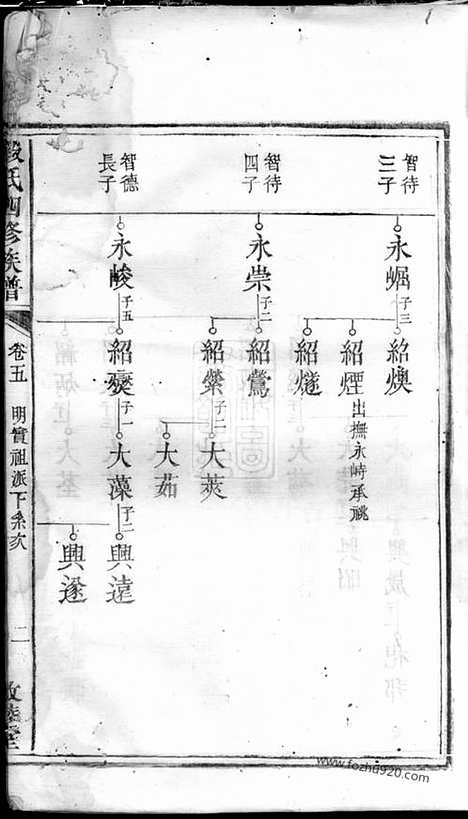 智待
三子
永崛
子三
紹煥
紹煙
出撫永峙承祧
紹燧
智待
四子
永崇
子二
紹鶯
紹縈
子二
大莢
大茹
智德
長子
永峻
子五
紹燮
子一
大藻
子二
興遠
興遂
段氏四修族譜
卷五
明實祖派下系次
二
敦睦堂
www.fozhu920.com